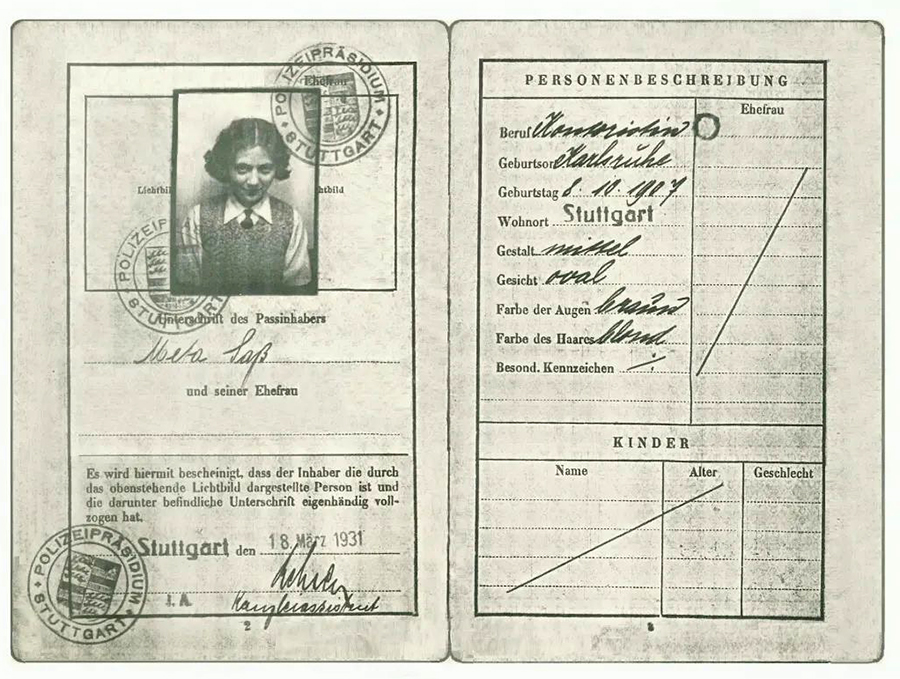 POLIZEIPRÄSIDIUM STUTTGART
Ehefrau
Lichtbild
POLIZEIP
STUTTGART
Unterschrift des Passinhabers
Meta Saß
und seiner Ehefrau
Es wird hiermit bescheinigt, dass der Inhaber die durch
das obenstehende Lichtbild dargestellte Person ist und
die darunter befindliche Unterschrift eigenhändig voll-
zogen hat.
Stuttgart den 18. März 1931
POLIZEIPRÄSIDIUM STUTTGART
I. A.
Kanzleiassistent
2
PERSONENBESCHREIBUNG
Ehefrau
Beruf Kontoristin
Geburtsort Karlsruhe
Geburtstag 8. 10. 1907
Wohnort Stuttgart
Gestalt mittel
Gesicht oval
Farbe der Augen braun
Farbe des Haares blond
Besond. Kennzeichen
KINDER
Name Alter Geschlecht